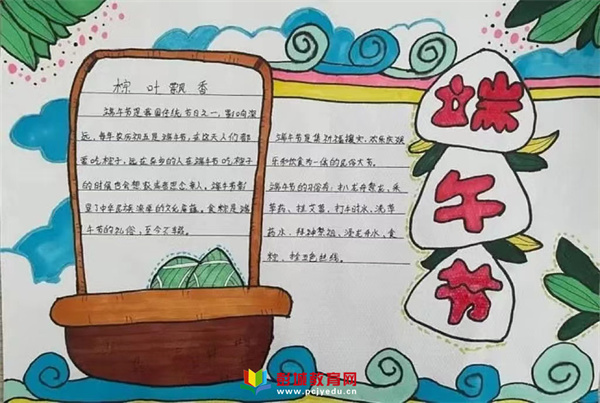 粽叶飘香
端午节是我国传统节日之一,影响深
远,每年农历初五是端午节,在这天人们都
爱吃粽子,远在他乡的人在端午节吃粽子
的时候也会想家或者思念亲人,端午节彰
显了中华民族渊源的文化底蕴。食粽是端
午节的礼俗,至今不辍。
端午节是集祈福攘灾、欢乐庆娱
乐和饮食为一体的民俗大节。
端午节的习俗有:扒龙舟祭龙、采
草药、挂艾草、打午时水、洗草
药水、拜神祭祖、浸龙舟水、食
粽、拴五色丝线。
端
午
节
都城教育网
www.pcjyedu.cn